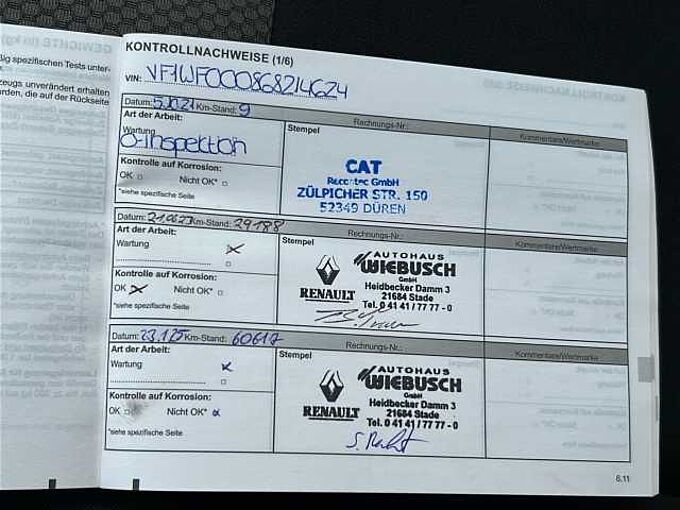 GEWICHTE (in kg)
ßig spezifischen Tests unter-
zeugs unverändert erhalten
rden, die auf der Rückseite
KONTROLLNACHWEISE (1/6)
VIN: VF1WF000868214624
Datum: 5.10.21 Km-Stand: 9 Rechnungs-Nr.: Kommentare/Wertmarke
Art der Arbeit: Stempel
Wartung
O-Inspektion
Kontrolle auf Korrosion:
OK Nicht OK*
*siehe spezifische Seite
CAT
GmbH
ZÜLPICHER STR. 150
52349 DÜREN
Datum: 21.06.23 Km-Stand: 29188 Rechnungs-Nr.: Kommentare/Wertmarke
Art der Arbeit: Stempel
Wartung x
Kontrolle auf Korrosion:
OK x Nicht OK*
*siehe spezifische Seite
RENAULT
AUTOHAUS
WIEBUSCH
GmbH
Heidbecker Damm 3
21684 Stade
Tel. 0 41 41 / 77 77 - 0
Datum: 23.1.25 Km-Stand: 60617 Rechnungs-Nr.: Kommentare/Wertmarke
Art der Arbeit: Stempel
Wartung x
Kontrolle auf Korrosion:
OK Nicht OK* x
*siehe spezifische Seite
RENAULT
AUTOHAUS
WIEBUSCH
GmbH
Heidbecker Damm 3
21684 Stade
Tel. 0 41 41 / 77 77 - 0
6.11